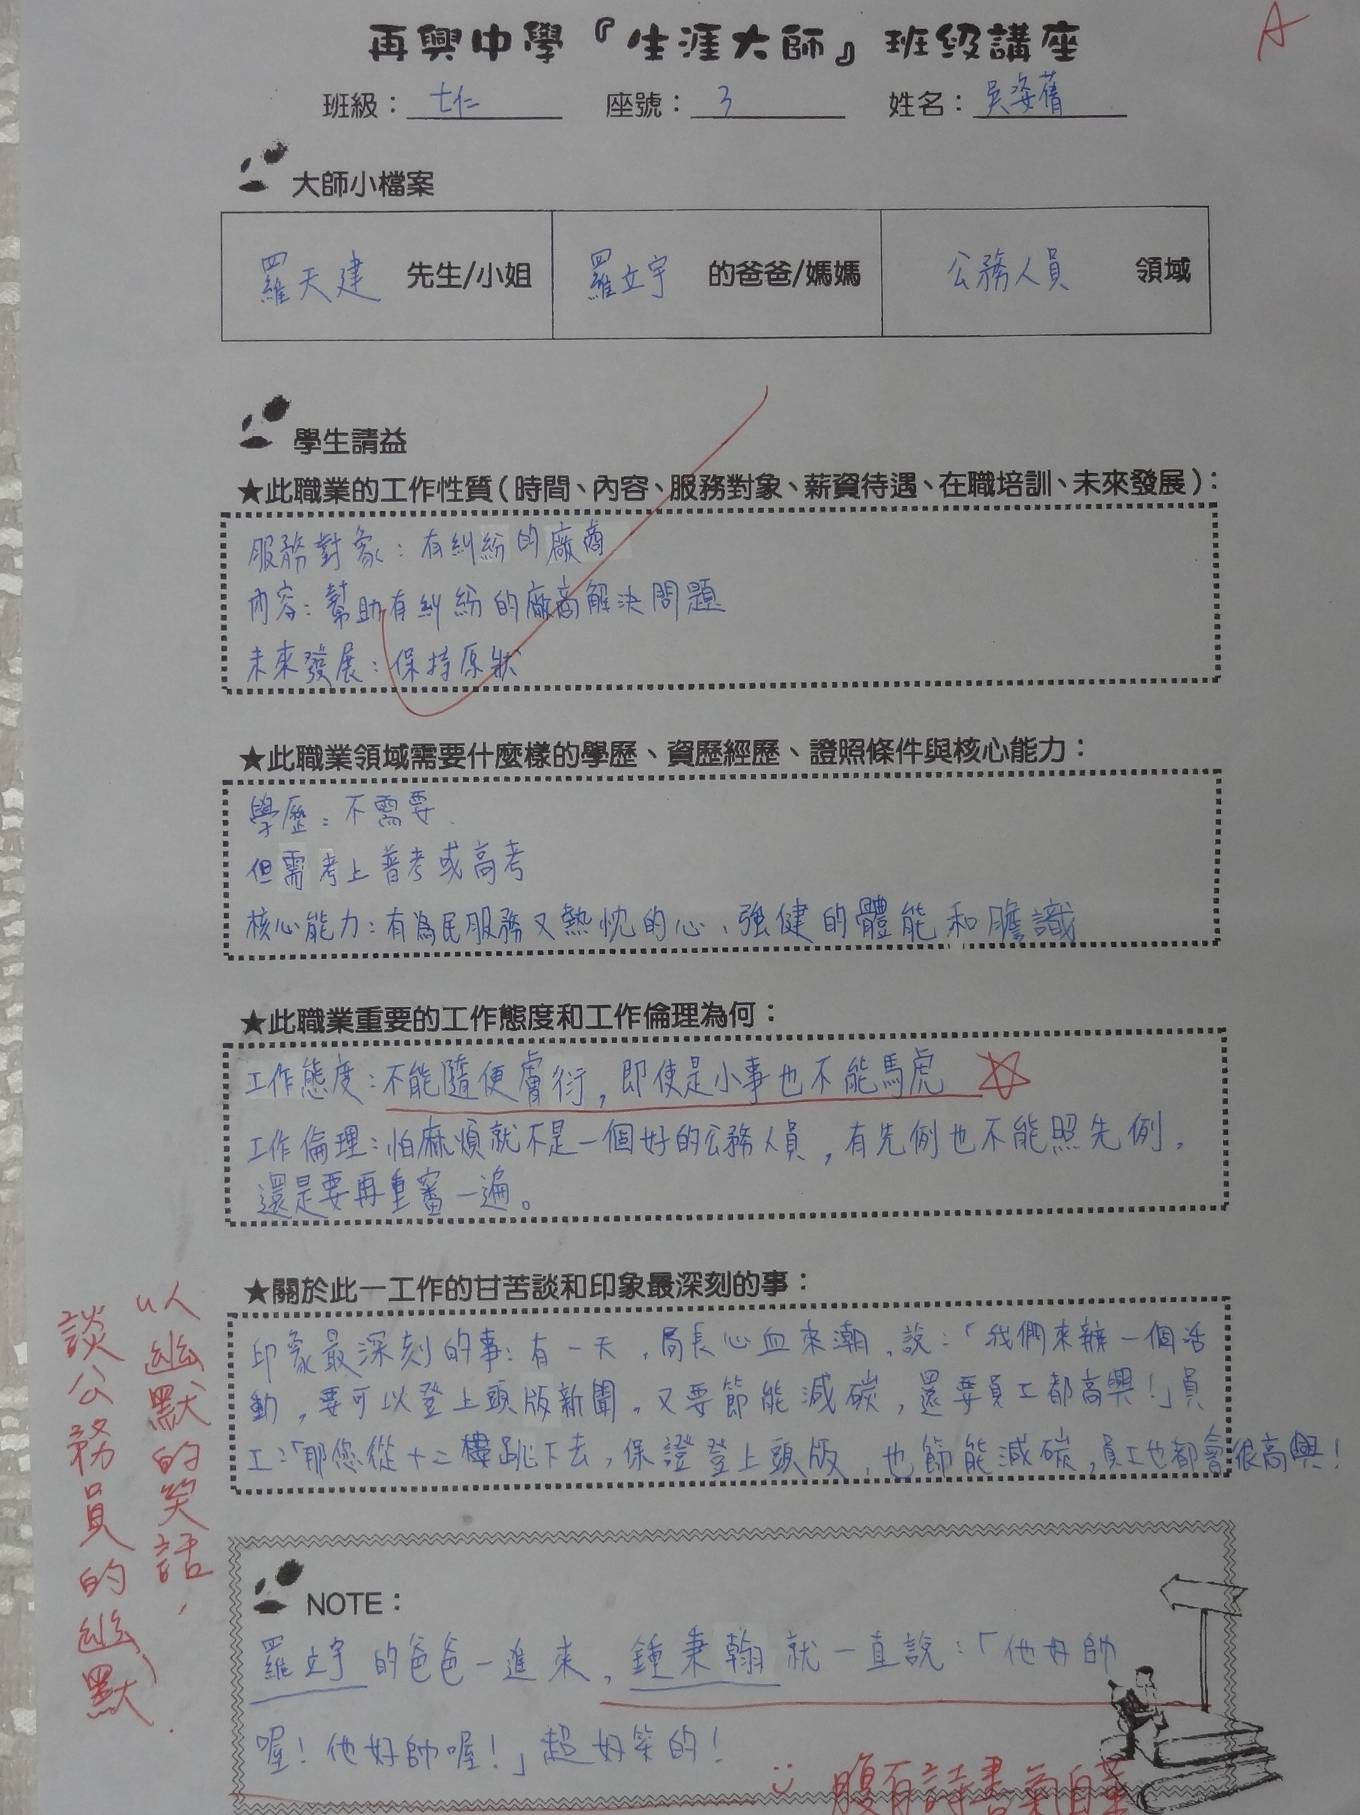 再興中學『生涯大師』班級講座
A
班級：七仁 座號：3 姓名：吳姿蒨
大師小檔案
羅天建 先生/小姐 羅立宇 的爸爸/媽媽 公務人員 領域
學生請益
★此職業的工作性質（時間、內容、服務對象、薪資待遇、在職培訓、未來發展）：
服務對象：有糾紛的廠商
內容：幫助有糾紛的廠商解決問題
未來發展：保持原狀
★此職業領域需要什麼樣的學歷、資歷經歷、證照條件與核心能力：
學歷：不需要.
但需考上普考或高考
核心能力：有為民服務又熱忱的心、強健的體能和膽識
★此職業重要的工作態度和工作倫理為何：
工作態度：不能隨便膚衍，即使是小事也不能馬虎
工作倫理：怕麻煩就不是一個好的公務人員，有先例也不能照先例，
還是要再重審一遍。
★關於此一工作的甘苦談和印象最深刻的事：
印象最深刻的事：有一天，局長心血來潮，說：「我們來辦一個活
動，要可以登上頭版新聞。又要節能減碳，還要員工都高興！」員
工：「那您從十二樓跳下去，保證登上頭版，也節能減碳，員工也都會很高興！
以幽默的笑話，
談公務員的幽默.
NOTE：
羅立宇的爸爸一進來，鍾秉翰就一直說：「他好帥
喔！他好帥喔！」超好笑的！
腹有詩書氣自華